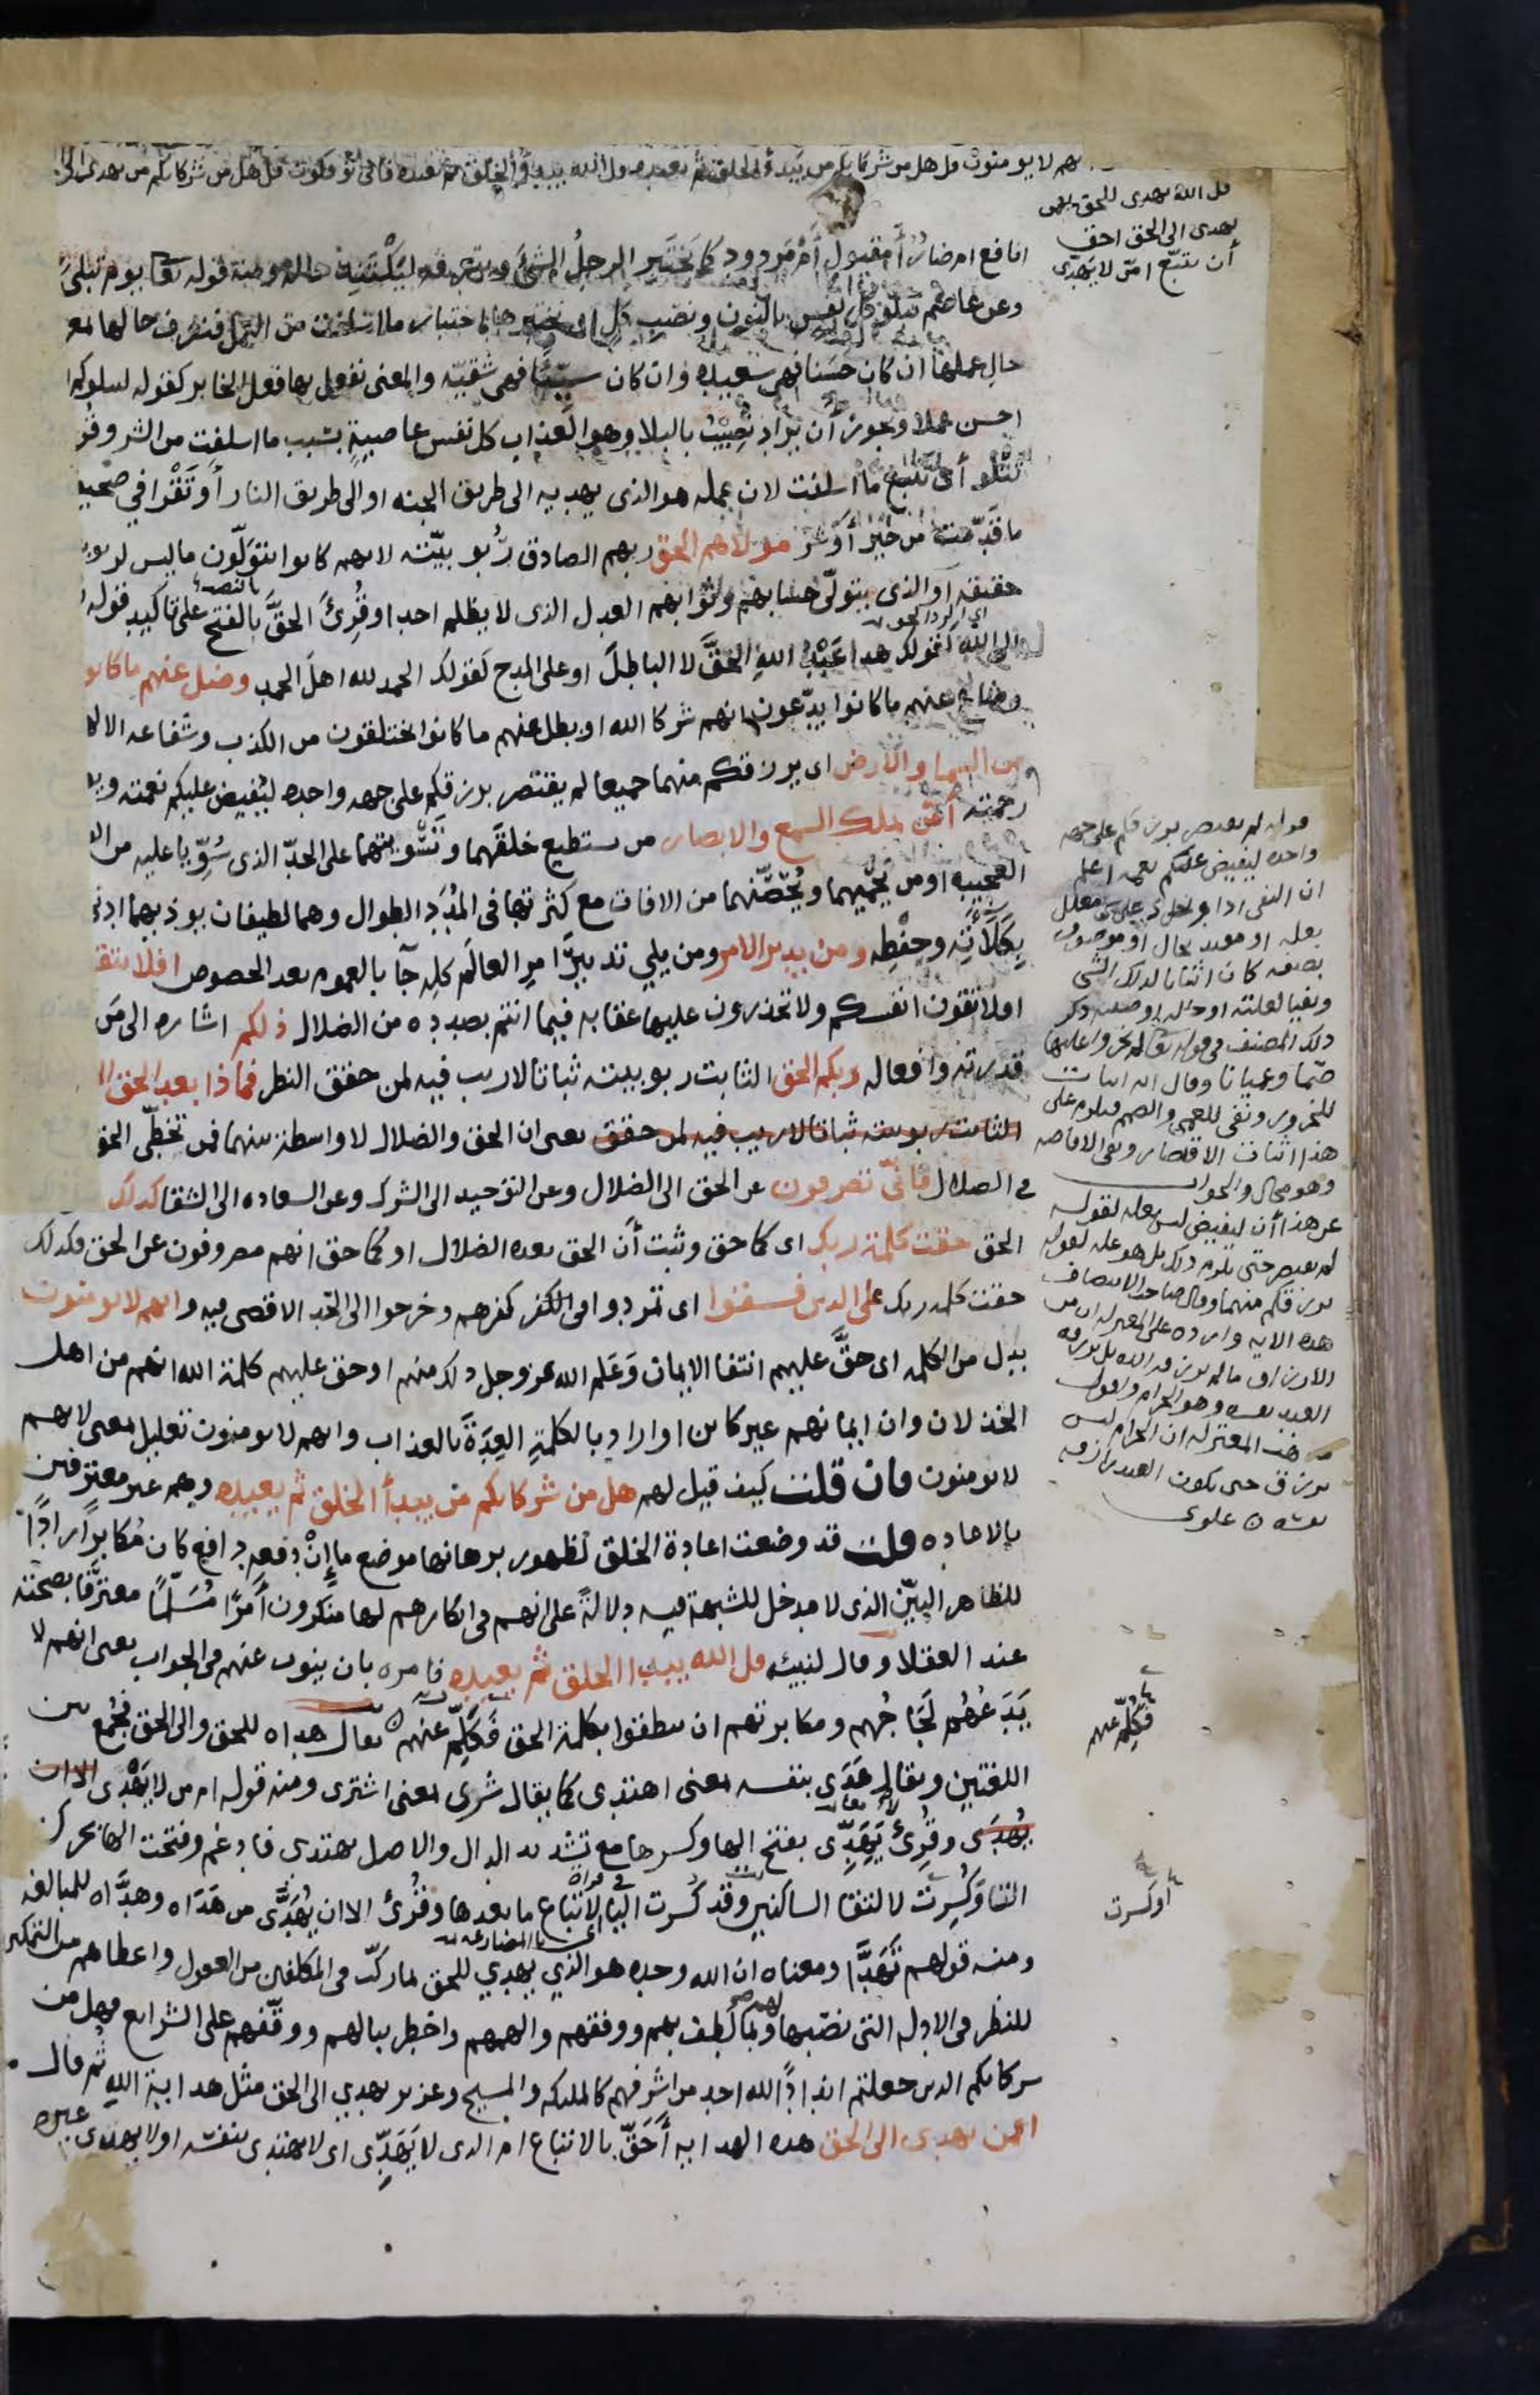 هم لا يومنون قل هل من شركائكم من يبدؤ الخلق ثم يعيده قل الله يبدؤ الخلق ثم يعيده فانى توفكون قل هل من شركائكم من يهدى الى
قل الله يهدى للحق افمن
يهدى الى الحق احق
أن يتبع امّن لا يهدى
انافع ام ضار أمقبول أم مردود كما يختبر الرجل الشئ ويتعرفه ليكتنه حاله ومنه قوله تعا يوم تبلى
وعن عاصم نبلو كل نفس بالنون ونصب كل اى نختبرها باختبار ما اسلفت من العمل فنعرف حالها بمعر
حال عملها ان كان حسنا فهى سعيده وان كان سيّئا فهى شقيّه والمعنى نفعل بها فعل الخابر كقوله ليبلوكم ا
احسن عملا ويجوز أن يراد نصيب بالبلا وهو العذاب كل نفس عاصيةٍ بسبب ما اسلفت من الشر وقر
تتلو أى تتبع ما اسلفت لان عمله هو الذى يهديه الى طريق الجنه او الى طريق النار أو تقرا في صحيف
ما قدّمت من خير أو شر مولاهم الحق ربهم الصادق ربوبيّته لانهم كانوا يتولّون ما ليس لربوب
حقيقه او الذى يتولّى حسابهم وثوابهم العدل الذى لا يظلم احدا وقُرِئَ الحقَّ بالفتح على تاكيد قوله ا
الى الله كقولك هذا عبد الله الحقَّ لا الباطلَ او على المدح كقولك الحمد لله اهلَ الحمد وضل عنهم ما كانو
وضاع عنهم ما كانوا يدّعون انهم شركا الله او بطل عنهم ما كانوا يختلقون من الكذب وشفاعه الاله
من السما والارض اى يرزقكم منهما جميعا لم يقتصر برزقكم على جهه واحده ليفيض عليكم نعمته ويو
رحمته أمّن يملك السمع والابصار من يستطيع خلقهما وتسويتهما على الحدّ الذى سُوِّيا عليه من ال
العجيبه او من يحميهما ويُحصّنهما من الافات مع كثرتها فى المُدَدِ الطوال وهما لطيفان يوذيهما ادنى
بكلأته وحفظه ومن يدبر الامر ومن يلي تدبيرَ امرِ العالَم كلِه جآ بالعموم بعد الخصوص افلا تتق
اولا تقون انفسكم ولا تحذرون عليها عقابه فيما انتم بصدده من الضلال ذلكم اشاره الى مَن
قدرته وافعاله ربكم الحق الثابت ربوبيته ثباتا لا ريب فيه لمن حقق النظر فماذا بعد الحق الا
الثابت ربوبيته ثباتا لا ريب فيه لمن حقق يعنى ان الحق والضلال لا واسطة بينهما فمن تخطّى الحق
فى الضلال فأنّى تصرفون عن الحق الى الضلال وعن التوحيد الى الشرك وعن السعاده الى الشقا كذلك
الحق حقت كلمة ربك اى كما حق وثبت أن الحق بعده الضلال او كما حق انهم مصروفون عن الحق فكذلك
حقت كلمه ربك على الذين فسقوا اى تمردوا فى الكفر كفرهم وخرجوا الى الحد الاقصى فيه وانهم لا يومنون
بدل من الكلمه اى حقَّ عليهم انتفا الايمان وعَلم الله عز وجل ذلك منهم او حق عليهم كلمة الله انهم من اهل
الخذلان وان ايمانهم غير كائن او اراد بالكلمةِ العِدَةَ بالعذاب وانهم لا يومنون تعليل بمعنى لانهم
لا يومنون فان قلت كيف قيل لهم هل من شركائكم من يبدأ الخلق ثم يعيده وهم غير معترفين
بالاعاده قلت قد وضعت اعادة الخلق لظهور برهانها موضع ما إنْ دفعه دافع كان مُكابرًا رادًّا
للظاهر البيّن الذى لا مدخل للشبهة فيه دلالةً على انهم فى انكارهم لها منكرون أمرًا مُسَلَّمًا معترَفًا بصحته
عند العقلا وقال لنبيه قل الله يبدا الخلق ثم يعيده فامره بان ينوب عنهم فى الجواب يعنى انهم لا
يَدَعُهُم لَجَاجُهم ومكابرتهم ان ينطقوا بكلمة الحق فَكَلِّم عنهم يقال هداه للحق والى الحق فجُمع بين
اللغتين ويقال هَدَى بنفسه بمعنى اهتدى كما يقال شرى بمعنى اشترى ومنه قوله ام من لا يَهْدى الا ان
يُهدَى وقُرِئَ يَهَدِّى بفتح الها وكسرها مع تشديد الدال والاصل يهتدى فادغم وفتحت الها بحركه
التا وكُسِرت لالتقا الساكنين وقد كُسرت اليا لاتباع ما بعدها وقُرئ الا ان يُهَدَّى من هَدَاه وهدَّاه للمبالغه
ومنه قولهم تَهَدَّا ومعناه ان الله وحده هو الذي يهدي للحق بما ركّب فى المكلفين من العقول واعطاهم من التمكين
للنظر فى الادله التى نصبها لهم وبما لَطف بهم ووفقهم والهمهم واخطر ببالهم ووقّفهم على الشرايع فهل من
شركائكم الذين جعلتم اندادًا لله احد من اشرفهم كالملئكه والمسيح وعزير يهدي الى الحق مثل هداية الله ثم قال
افمن يهدى الى الحق هذه الهدايه أَحَقّ بالاتباع ام الذى لا يَهَدِّى اى لا يهتدى بنفسه او لا يهدى غيره
قوله لم يقتصر برزقكم على جهه
واحده ليفيض عليكم نعمه اعلم
ان النفى اذا دخل على معلل
بعله او مقيد بحال او موصوف
بصفه كان اثباتا لذلك الشى
ونفيا لعلته او حاله او صفته ذكر
ذلك المصنف فى قوله تعا لم يخروا عليها
صمّا وعميانا وقال انه اثبات
للخرور ونفى للعمى والصمم فيلزم على
هذا اثبات الاقتصار ونفى الافاضه
وهو محال والجواب
عن هذا أن ليفيض ليس بعله لقوله
لم يقتصر حتى يلزم ذلك بل هو عله لقوله
يرزقكم منهما وقال صاحب الانتصاف
هذه الايه وارده على المعتزله ان من
الارزاق ما لم يرزقه الله بل يرزقه
العبد نفسه وهو الحرام
المعتزله ان الحرام ليس
برزق حتى يكون العبد رازقه
نفسه علوى
فكلّم عنهم
او كسرت